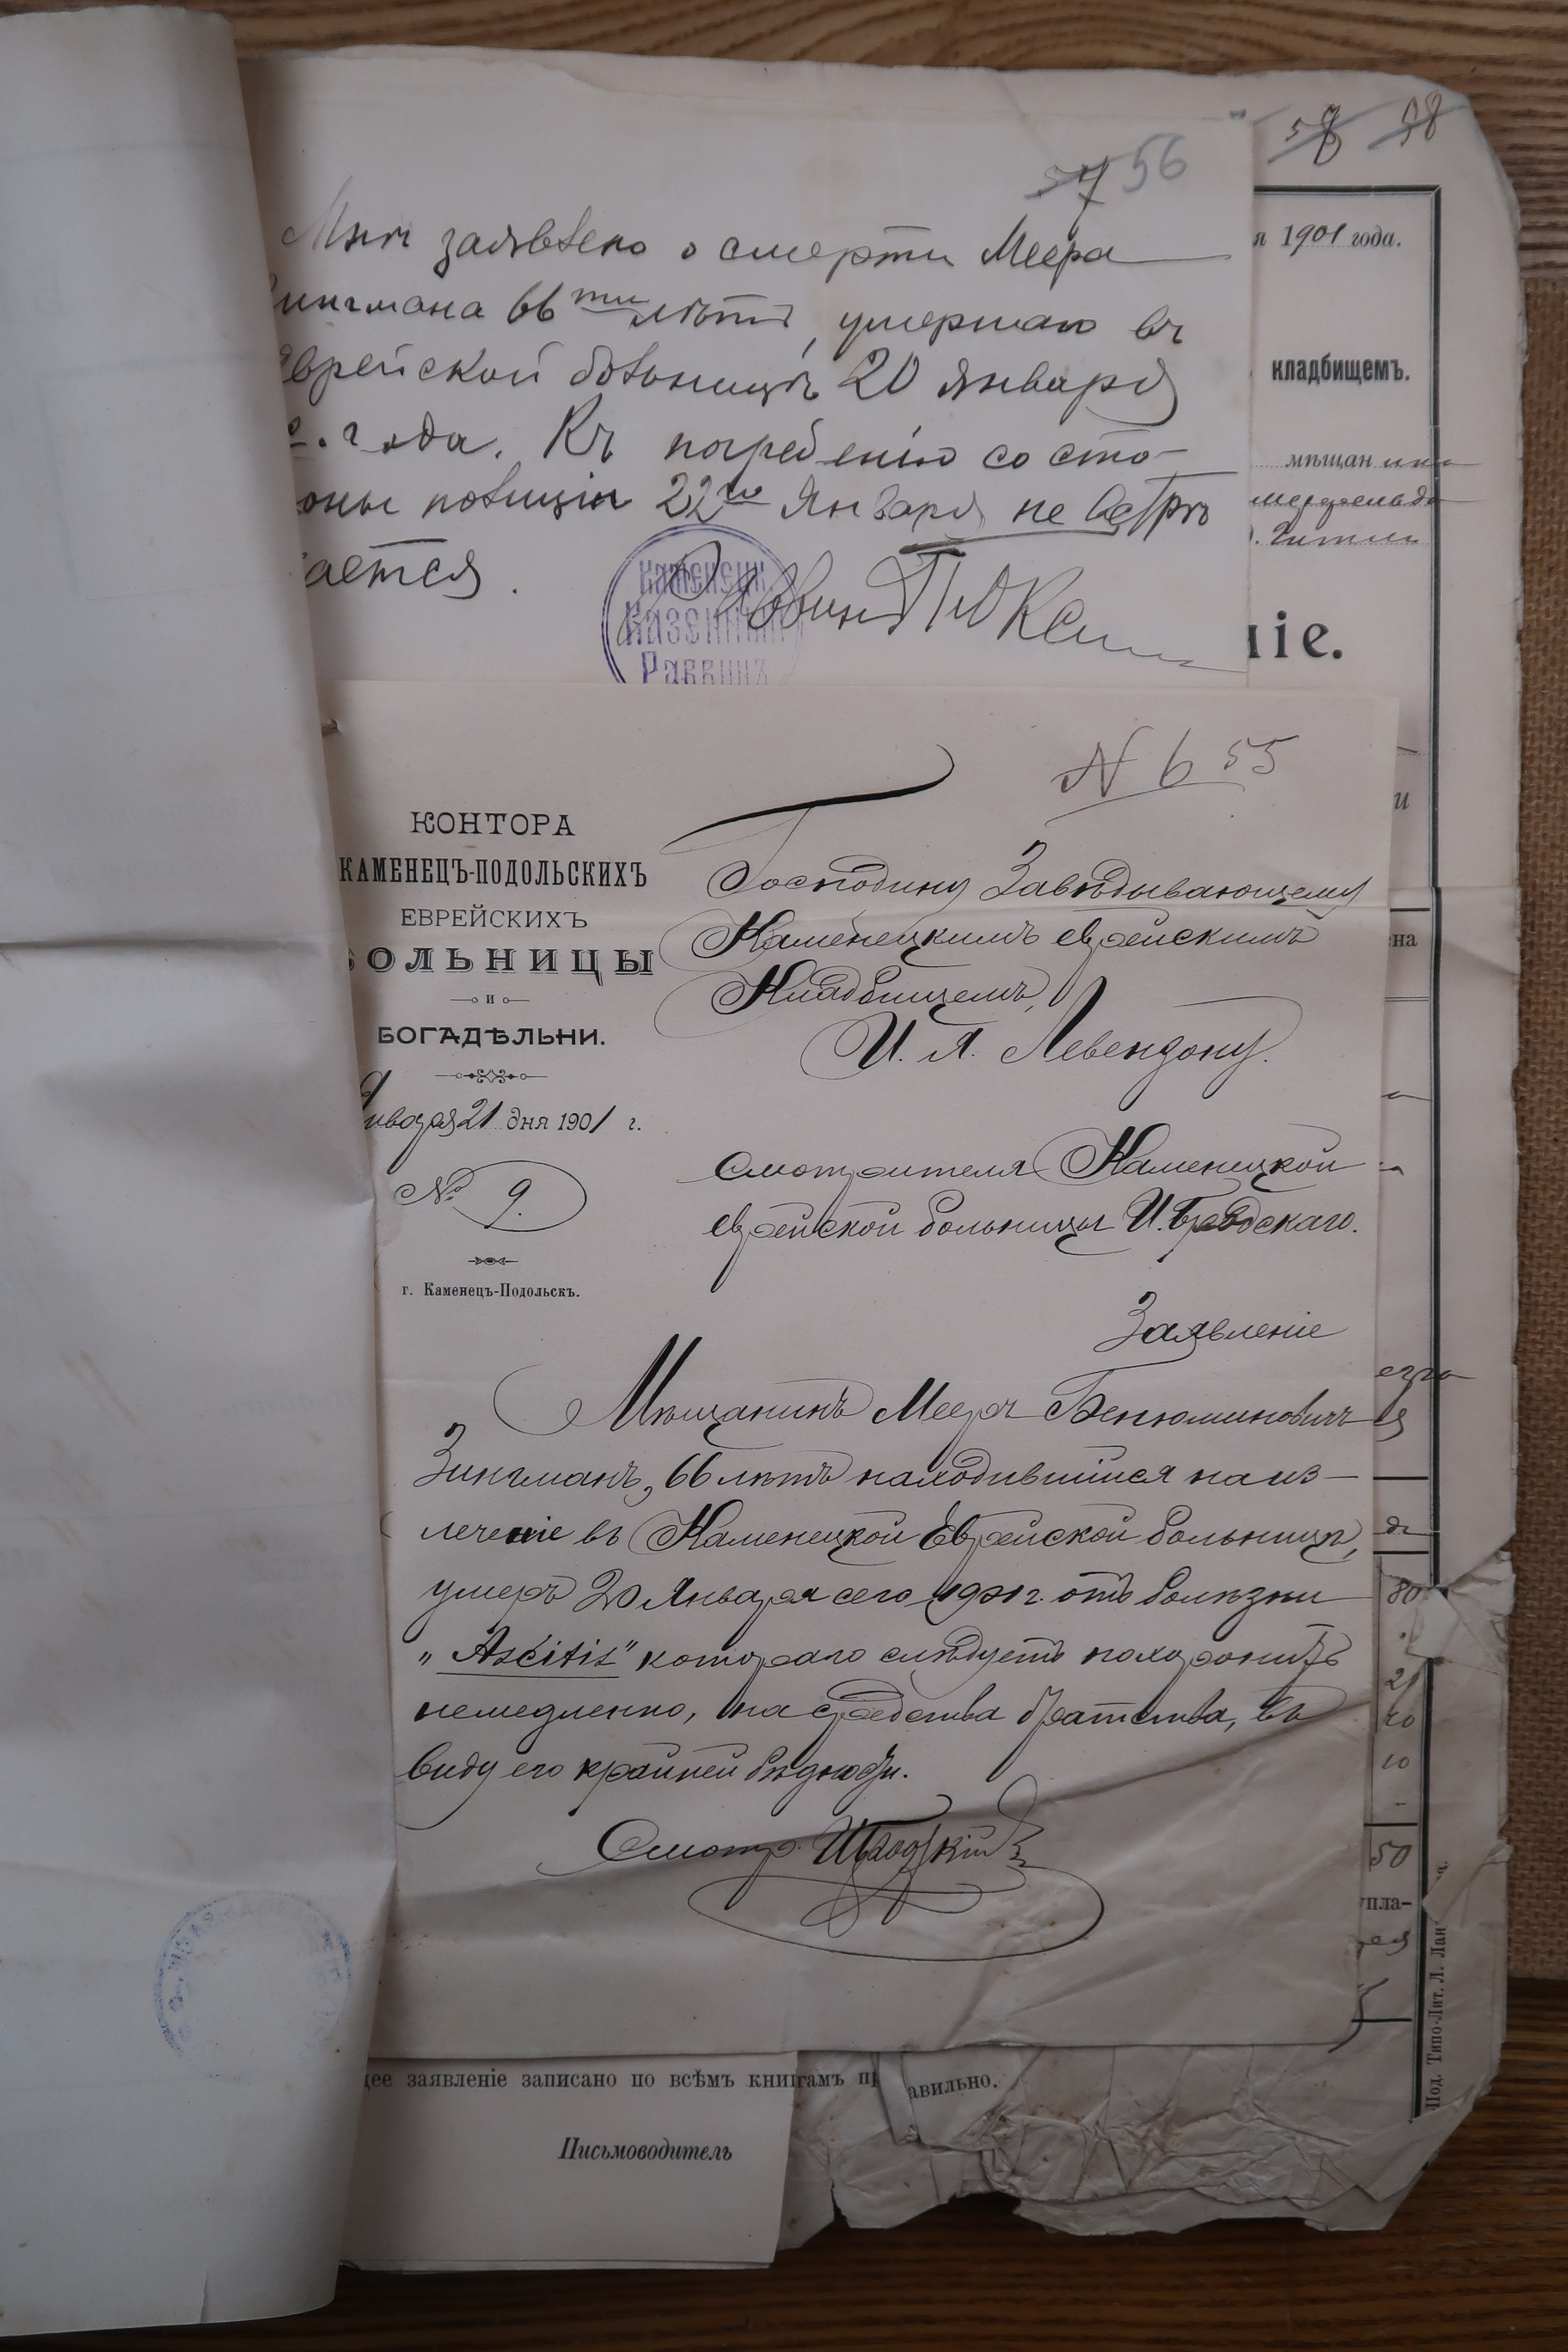 58 58
57 56
я 1901 года.
Мнѣ заявлено о смерти Меера
ингмана 66ти лѣтъ, умершаго въ
врейской больницѣ 20 января
с. года. Къ погребенію со сто-
оны полиціи 22го Января не встрѣ
ается.
кладбищемъ.
мѣщан
Каменецк
Казенный
Раввинъ
Раввинъ
іе.
N 6 55
КОНТОРА
КАМЕНЕЦЪ-ПОДОЛЬСКИХЪ
ЕВРЕЙСКИХЪ
БОЛЬНИЦЫ
и
БОГАДѢЛЬНИ.
Января 21 дня 1901 г.
№ 9.
г. Каменецъ-Подольскъ.
Господину Завѣдывающему
Каменецкимъ еврейскимъ
Кладбищемъ,
И. Я. Левензону.
Смотрителя Каменецкой
еврейской больницы И. Бродскаго.
Заявленіе
Мѣщанинъ Мееръ Бенюминовичъ
Зингманъ, 66 лѣтъ находившійся на из-
леченіе въ Каменецкой Еврейской больницѣ,
умеръ 20 Января сего 1901 г. отъ болѣзни
„Ascitis" котораго слѣдуетъ похоронить
немедленно, на средства братства, въ
виду его крайней бѣдности.
Смотр. ИБродскій
и
на
80
21
40
10
50
упла-
Под. Типо-Лит. Л. Лан
щее заявленіе записано по всѣмъ книгамъ пр
авильно.
Письмоводитель